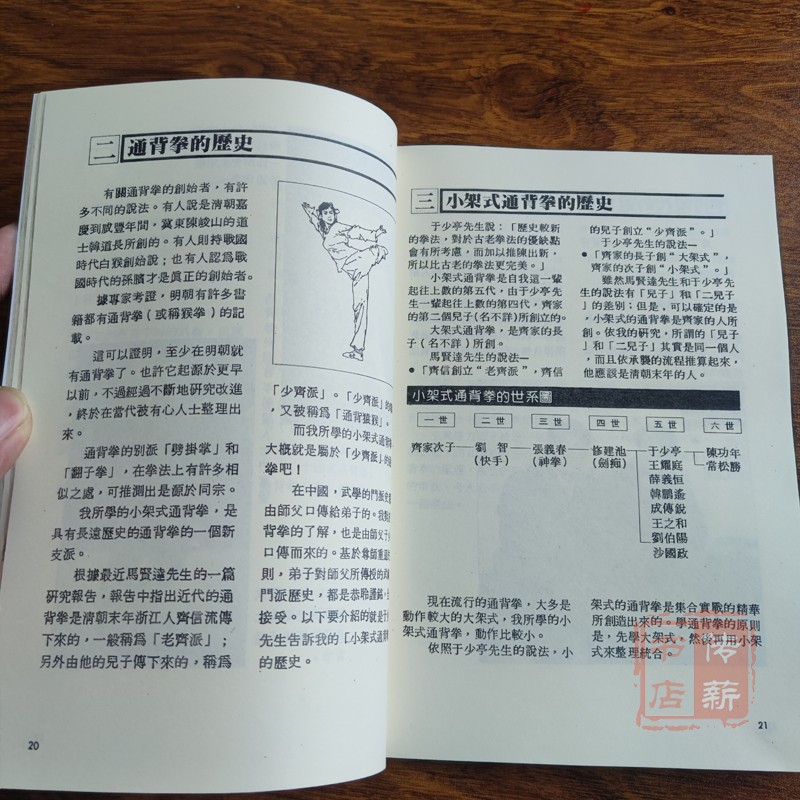 二 通背拳的歷史
有關通背拳的創始者，有許
多不同的說法。有人說是清朝嘉
慶到咸豐年間，冀東陳峻山的道
士韓道長所創的。有人則持戰國
時代白猴創始說；也有人認爲戰
國時代的孫臏才是眞正的創始者。
據專家考證，明朝有許多書
籍都有通背拳（或稱猴拳）的記
載。
這可以證明，至少在明朝就
有通背拳了。也許它起源於更早
以前，不過經過不斷地研究改進
，終於在當代被有心人士整理出
來。
通背拳的別派「劈掛掌」和
「翻子拳」，在拳法上有許多相
似之處，可推測出是源於同宗。
我所學的小架式通背拳，是
具有長遠歷史的通背拳的一個新
支派。
根據最近馬賢達先生的一篇
研究報告，報告中指出近代的通
背拳是清朝末年浙江人齊信流傳
下來的，一般稱爲「老齊派」；
另外由他的兒子傳下來的，稱爲
「少齊派」。「少齊派」的
，又被稱爲「通背猿猴」。
而我所學的小架式通背
大概就是屬於「少齊派」的
拳吧！
在中國，武學的門派史
由師父口傳給弟子的。我對
背拳的了解，也是由師父于
口傳而來的。基於尊師重道
則，弟子對師父所傳授的武
門派歷史，都是恭聆謹銘，
接受。以下要介紹的就是于
先生告訴我的「小架式通背
的歷史。
20
三 小架式通背拳的歷史
于少亭先生說：「歷史較新
的拳法，對於古老拳法的優缺點
會有所考慮，而加以推陳出新，
所以比古老的拳法更完美。」
小架式通背拳是自我這一輩
起往上數的第五代，由于少亭先
生一輩起往上數的第四代，齊家
的第二個兒子(名不詳)所創立的。
大架式通背拳，是齊家的長
子(名不詳)所創。
馬賢達先生的說法—
●「齊信創立“老齊派”，齊信
的兒子創立“少齊派”。」
于少亭先生的說法—
●「齊家的長子創“大架式”，
齊家的次子創“小架式”。」
雖然馬賢達先生和于少亭先
生的說法有「兒子」和「二兒子」
的差別；但是，可以確定的是
，小架式的通背拳是齊家的人所
創。依我的研究，所謂的「兒子」
和「二兒子」其實是同一個人
，而且依承襲的流程推算起來，
他應該是清朝末年的人。
小架式通背拳的世系圖
一世 二世 三世 四世 五世 六世
齊家次子 劉智 張義春 修建池 于少亭 陳功年
(快手) (神拳) (劍痴) 王耀庭 常松勝
薛義恒
韓鵬遙
成傳銳
王之和
劉伯陽
沙國政
現在流行的通背拳，大多是
動作較大的大架式，我所學的小
架式通背拳，動作比較小。
依照于少亭先生的說法，小
架式的通背拳是集合實戰的精華
所創造出來的。學通背拳的原則
是，先學大架式，然後再用小架
式來整理統合。
21